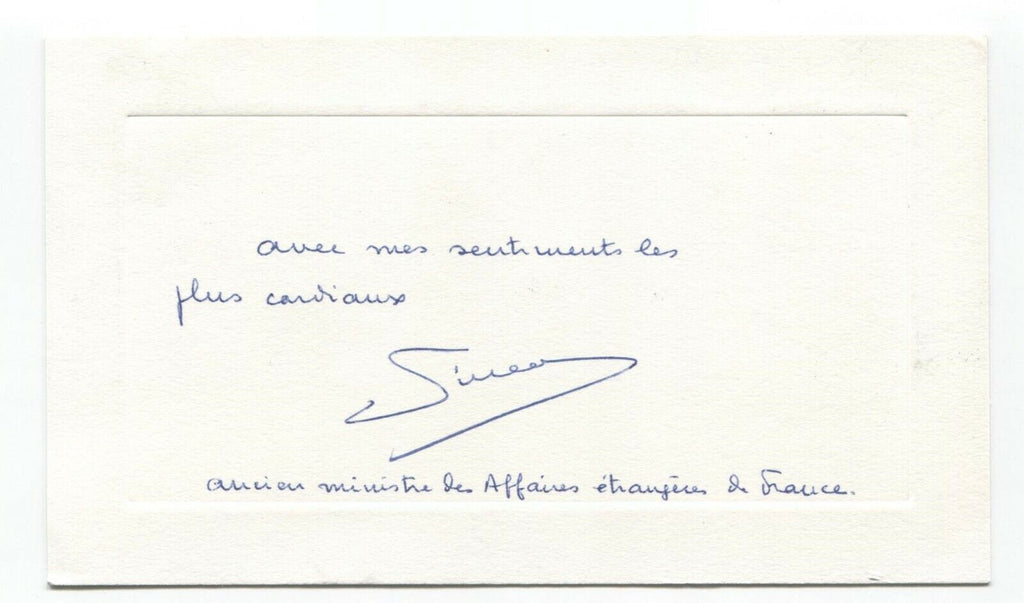 avec mes sentiments les
plus cordiaux
ancien ministre des Affaires étrangères de France.